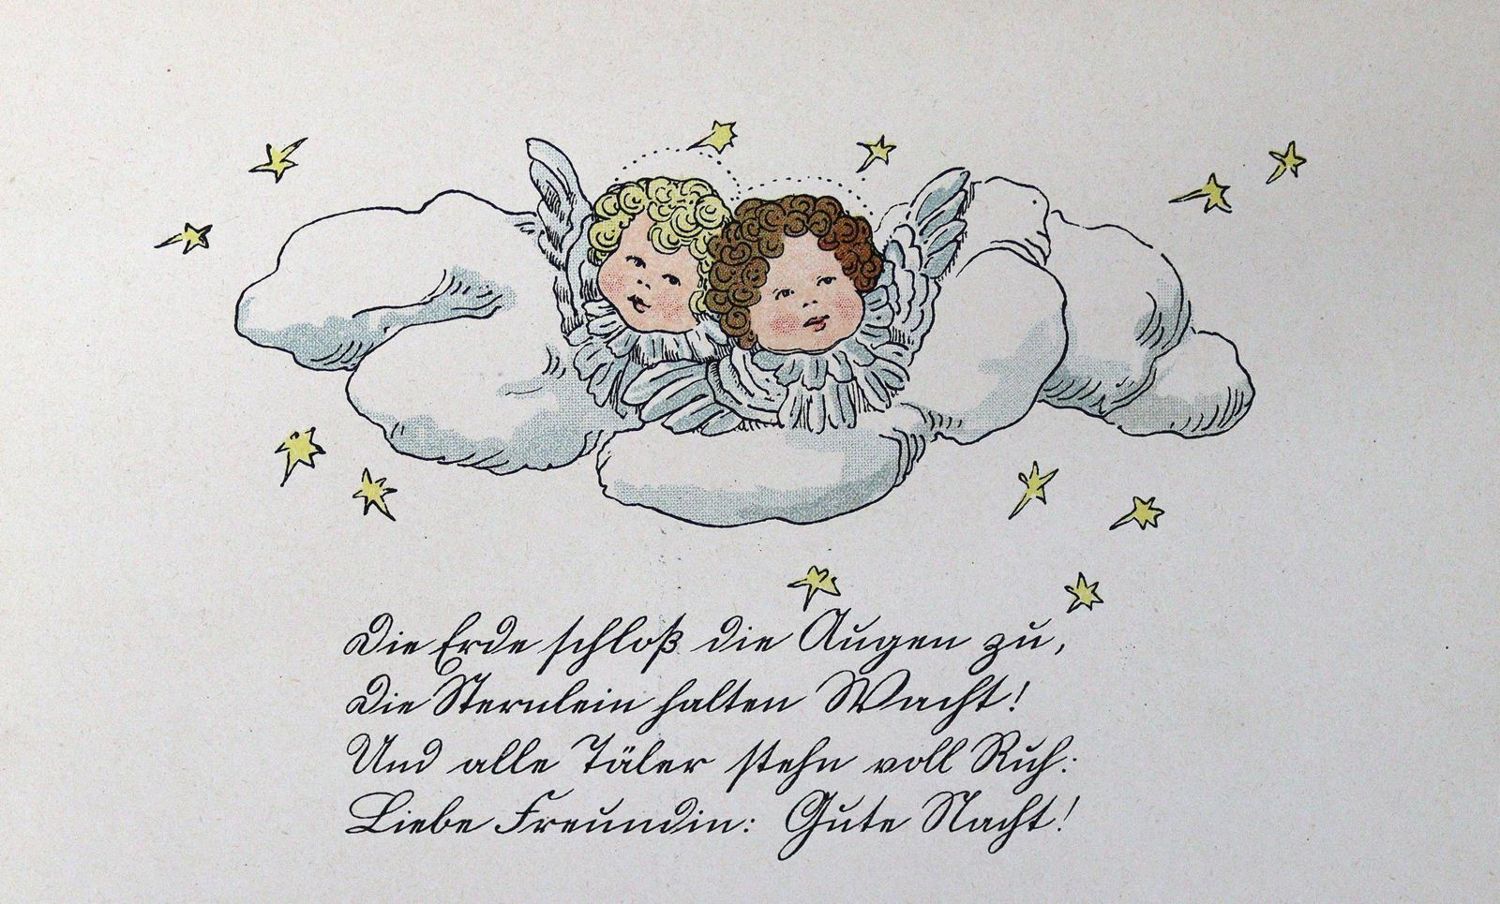 Die Erde schloß die Augen zu,
Die Sternlein halten Wacht!
Und alle Täler stehn voll Ruh:
Liebe Freundin: Gute Nacht!